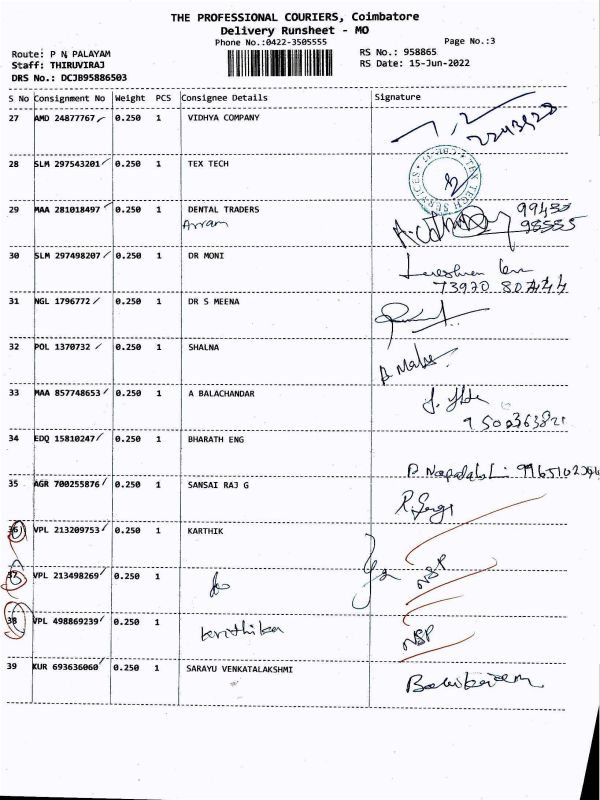 THE PROFESSIONAL COURIERS, Coimbatore
Delivery Runsheet - MO
Phone No.:0422-3505555
Page No.:3
Route: P N PALAYAM
RS No.: 958865
Staff: THIRUVIRAJ
RS Date: 15-Jun-2022
DRS No.: DCJB95886503
S No Consignment No Weight PCS Consignee Details Signature
27 AMD 24877767 0.250 1 VIDHYA COMPANY
28 SLM 297543201 0.250 1 TEX TECH
29 MAA 281018497 0.250 1 DENTAL TRADERS
30 SLM 297498207 0.250 1 DR MONI
73970 80744
31 NGL 1796772 0.250 1 DR S MEENA
32 POL 1370732 0.250 1 SHALNA
33 MAA 857748653 0.250 1 A BALACHANDAR
34 EDQ 15810247 0.250 1 BHARATH ENG
35 AGR 700255876 0.250 1 SANSAI RAJ G
36 VPL 213209753 0.250 1 KARTHIK
37 VPL 213498269 0.250 1 do NSP
38 VPL 498869239 0.250 1 krithika NSP
39 KUR 693636060 0.250 1 SARAYU VENKATALAKSHMI